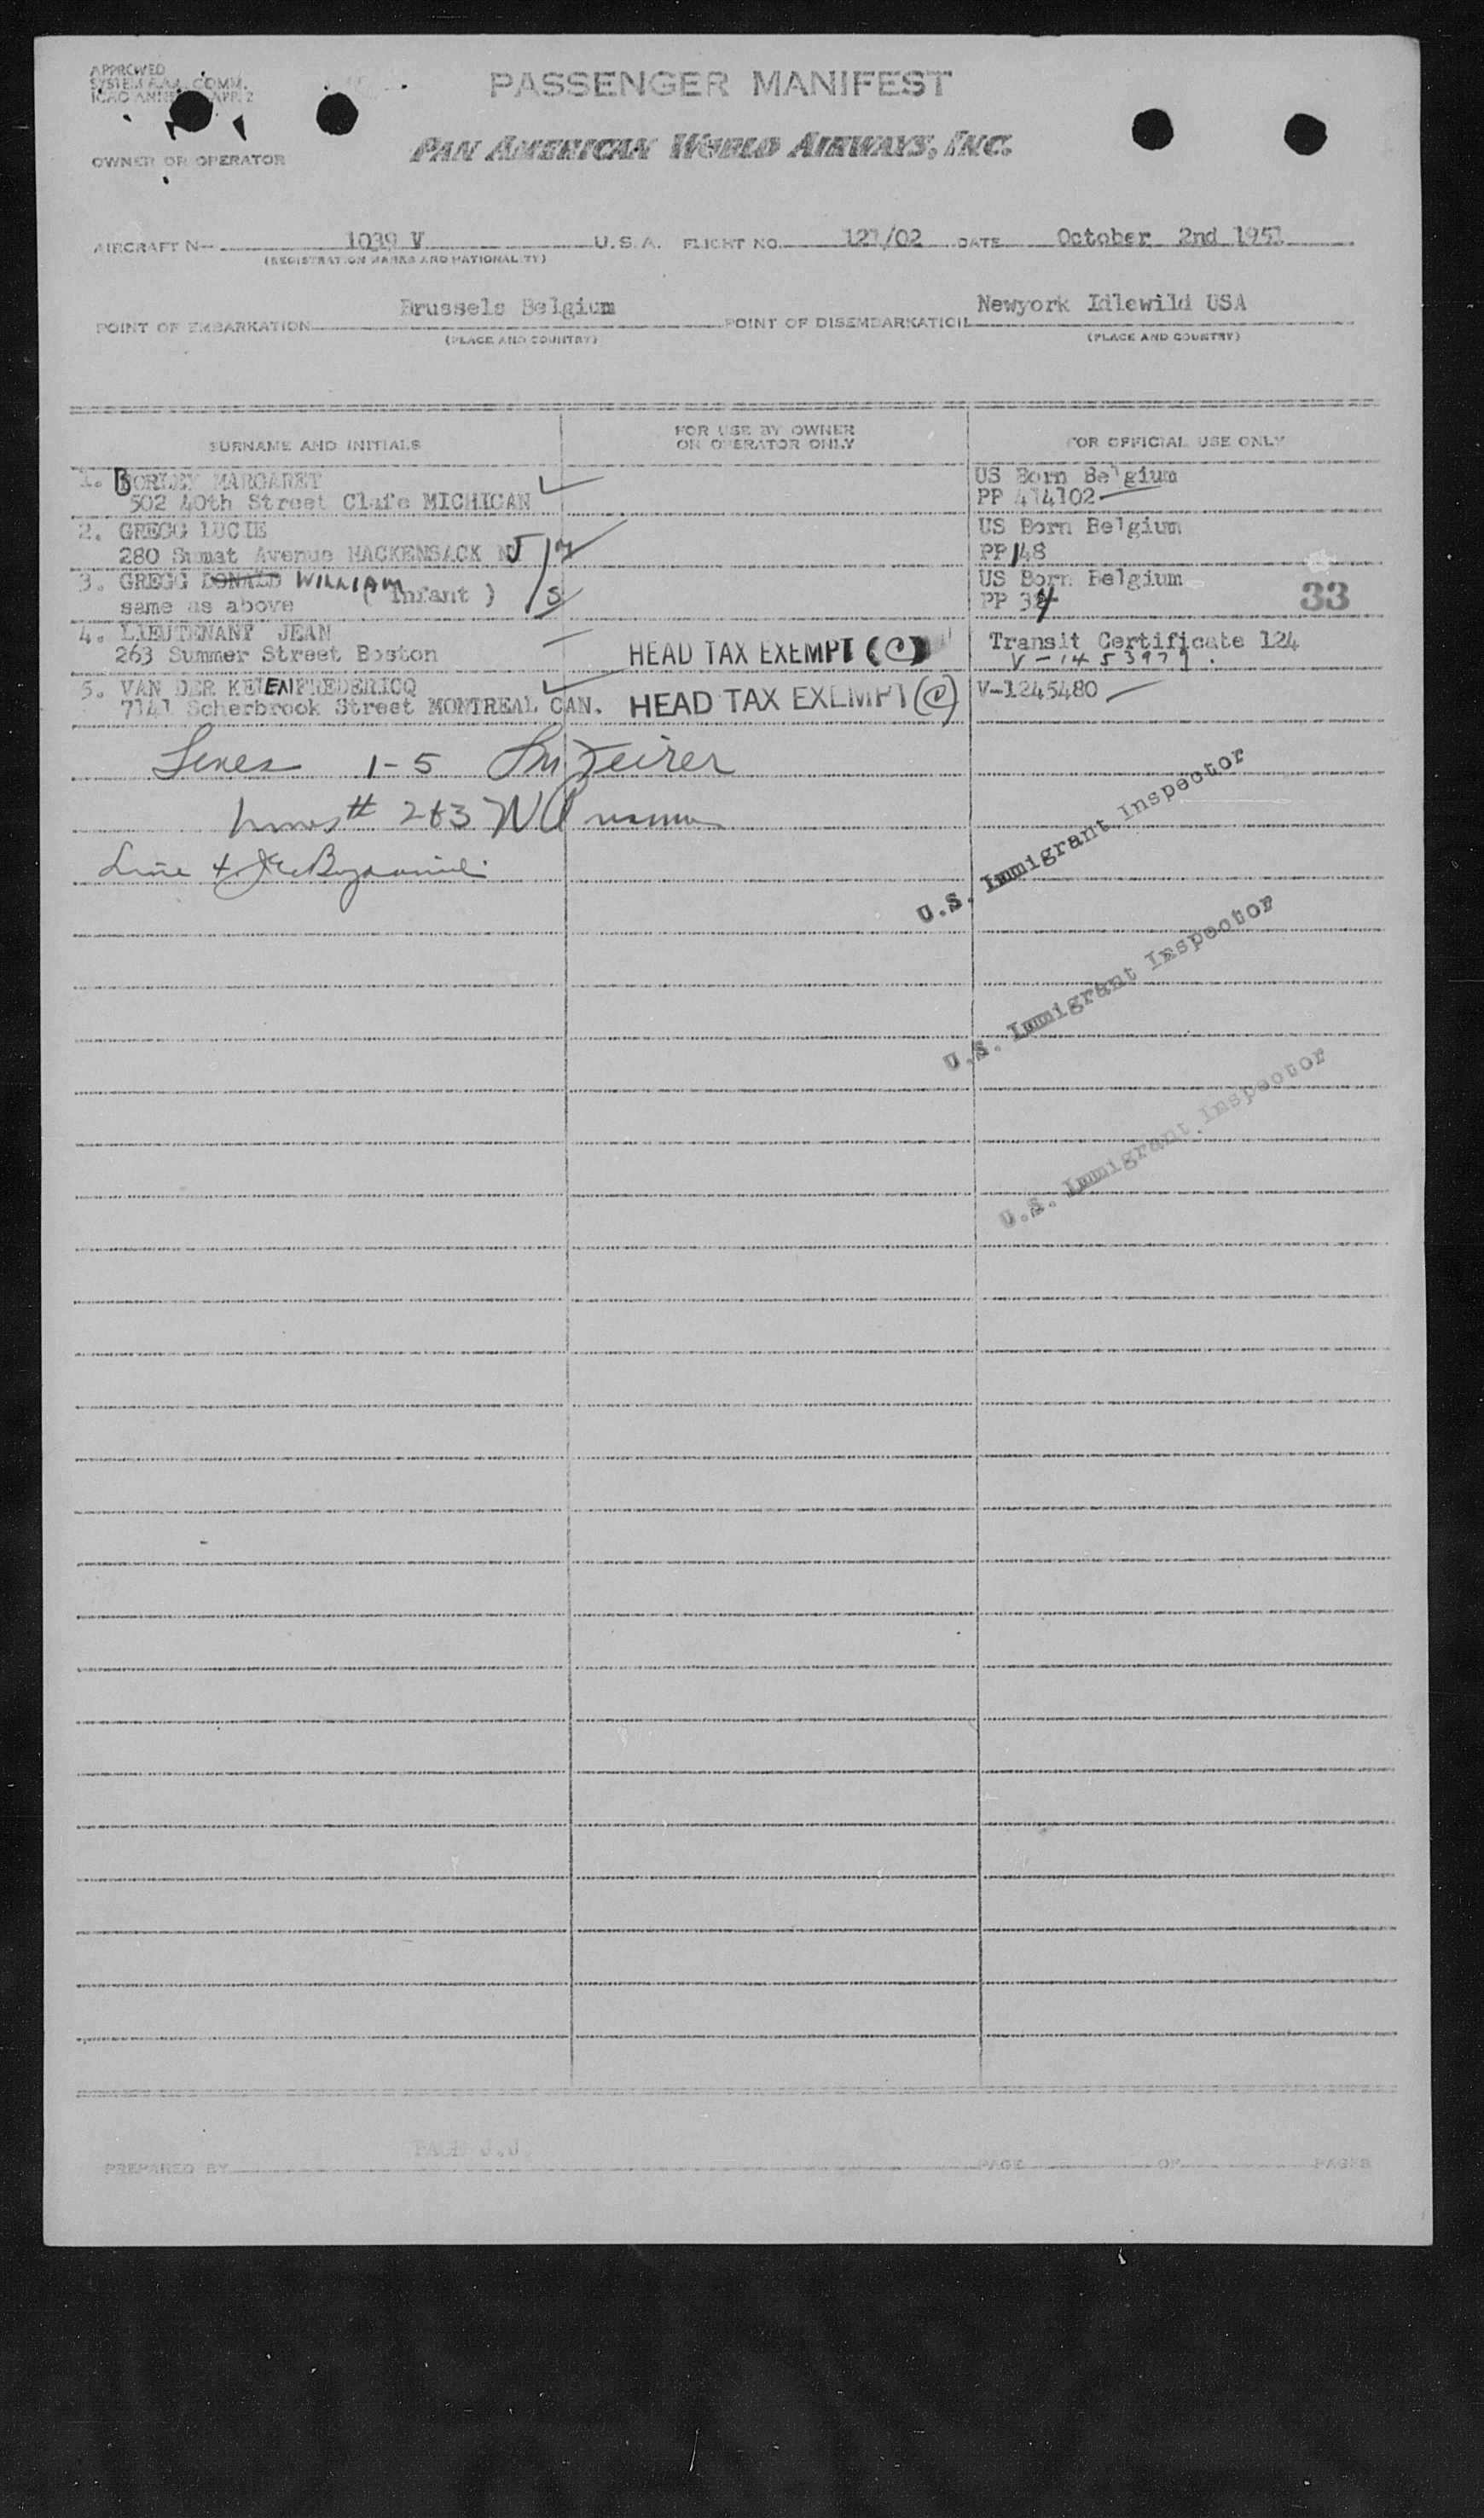 APPROVED
SYSTEM COMM.
ICAO APP. 2
PASSENGER MANIFEST
OWNER OR OPERATOR
PAN AMERICAN WORLD AIRWAYS, INC.
AIRCRAFT N- 1039 V U.S.A. FLIGHT NO. 121/02 DATE October 2nd 1951
(REGISTRATION MARKS AND NATIONALITY)
POINT OF EMBARKATION Brussels Belgium POINT OF DISEMBARKATION Newyork Idlewild USA
(PLACE AND COUNTRY) (PLACE AND COUNTRY)
SURNAME AND INITIALS FOR USE BY OWNER OR OPERATOR ONLY FOR OFFICIAL USE ONLY
1. BORLEY MARGARET US Born Belgium
502 40th Street MICHIGAN PP 414102
2. GREGG LUCIE US Born Belgium
280 Avenue HACKENSACK NJ PP 148
3. GREGG DONALD WILLIAM ( Infant ) US Born Belgium
same as above PP 324 33
4. LIEUTENANT JEAN Transit Certificate 124
263 Summer Street Boston HEAD TAX EXEMPT (C) V-1453977
5. VAN DER KELEN FREDERICQ V-1245480
7141 Scherbrook Street MONTREAL CAN. HEAD TAX EXEMPT (C)
Lines 1-5
# 2&3
Line 4
U.S. Immigrant Inspector
U.S. Immigrant Inspector
U.S. Immigrant Inspector
PREPARED BY J.J. PAGE OF PAGES